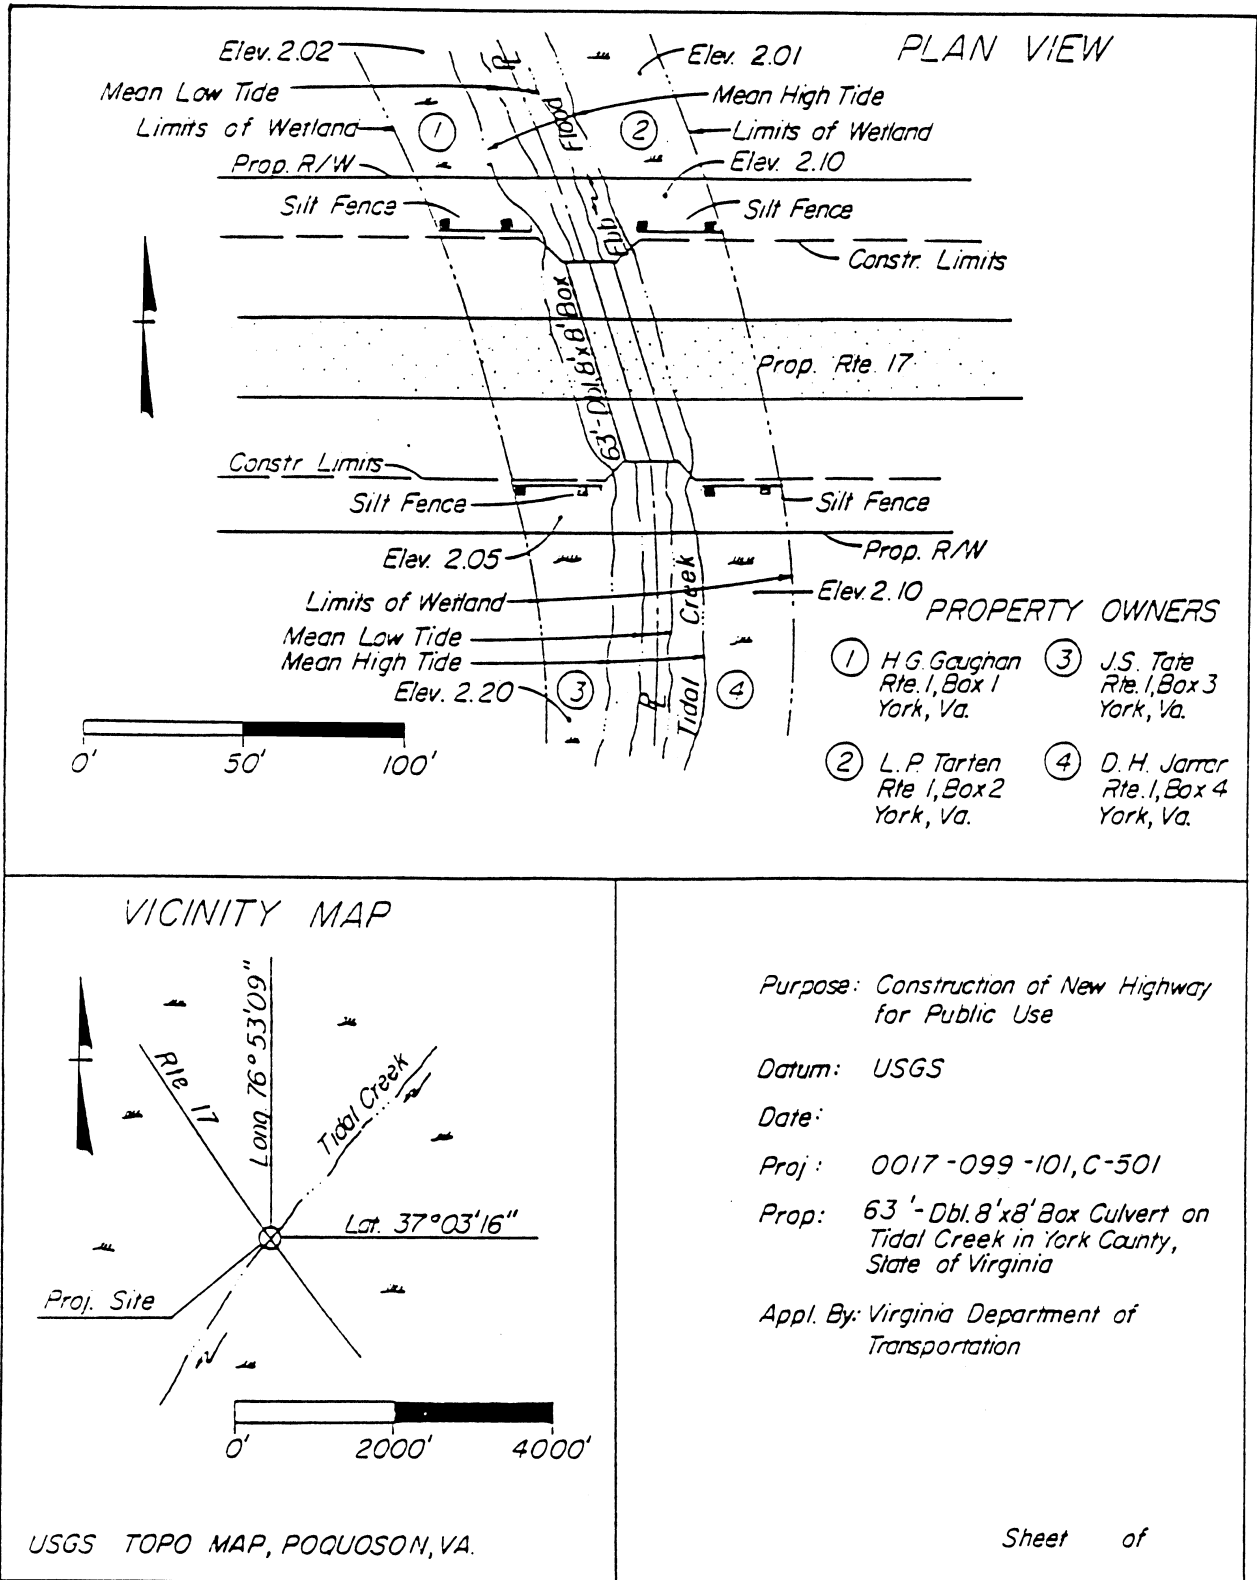 PLAN VIEW
Elev. 2.02
Elev. 2.01
Mean Low Tide
Mean High Tide
Limits of Wetland
Limits of Wetland
Prop. R/W
Elev. 2.10
Silt Fence
Silt Fence
Constr. Limits
PL
Flood
Ebb
1
2
63'-Dbl. 8'x8' Box
Prop. Rte. 17
Constr Limits
Silt Fence
Silt Fence
Prop. R/W
Elev. 2.05
Elev. 2.10
Limits of Wetland
Mean Low Tide
Mean High Tide
Elev. 2.20
3
4
PL
Tidal Creek
0' 50' 100'
PROPERTY OWNERS
1 H G. Gaughan
Rte. 1, Box 1
York, Va.
3 J.S. Tate
Rte. 1, Box 3
York, Va.
2 L.P. Tarten
Rte 1, Box 2
York, Va.
4 D. H.
Rte. 1, Box 4
York, Va.
VICINITY MAP
Rte 17
Long. 76° 53' 09"
Tidal Creek
Lat. 37° 03' 16"
Proj. Site
0' 2000' 4000'
USGS TOPO MAP, POQUOSON, VA.
Purpose: Construction of New Highway
for Public Use
Datum: USGS
Date:
Proj: 0017-099-101, C-501
Prop: 63'-Dbl. 8'x8' Box Culvert on
Tidal Creek in York County,
State of Virginia
Appl. By: Virginia Department of
Transportation
Sheet of